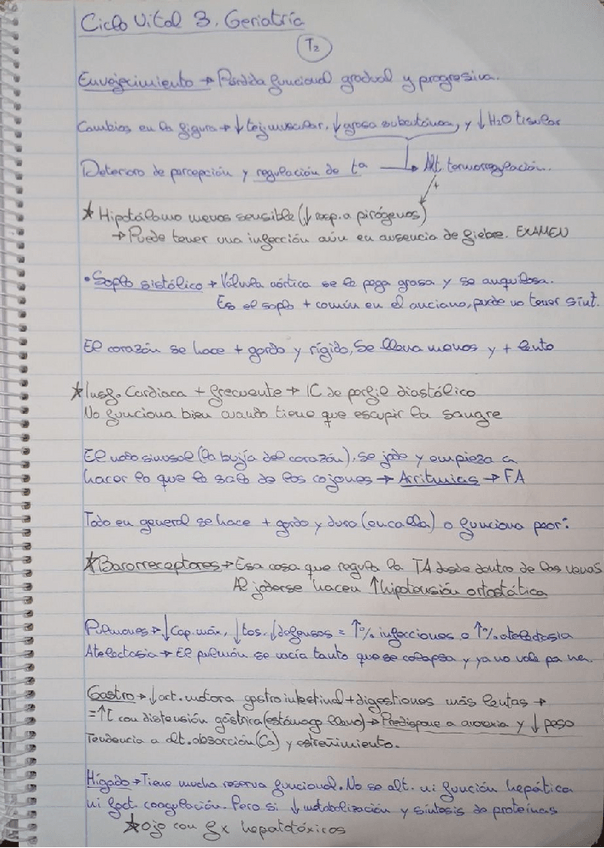 Ciclo Vital 3. Geriatría
T2
Envejecimiento → Pérdida funcional gradual y progresiva.
Cambios en la figura → ↓ tej muscular, ↓ grasa subcutánea, y ↓ H2O tisular
Deterioro de percepción y regulación de tª → Alt. termorregulación.
+
★ Hipotálamo menos sensible (↓ resp. a pirógenos)
→ Puede tener una infección aún en ausencia de fiebre. EXAMEN
• Soplo sistólico → Válvula aórtica se le pega grasa y se anquilosa.
Es el soplo + común en el anciano, puede no tener sínt.
El corazón se hace + gordo y rígido, Se llena menos y + lento
★ Insuf. Cardiaca + frecuente → IC de perfil diastólico
No funciona bien cuando tiene que escupir la sangre
El nodo sinusal (la bujía del corazón), se jode y empieza a
hacer lo que le sale de los cojones → Arritmias → FA
Todo en general se hace + gordo y duro (encalla) o funciona peor:
★ Barorreceptores → Esa cosa que regula la TA desde dentro de las venas
Al joderse hacen ↑ hipotensión ortostática
Pulmones → ↓ Cap. máx, ↓ tos, ↓ defensas = ↑% infecciones o ↑% atelectasia
Atelectasia → El pulmón se vacía tanto que se colapsa y ya no vale pa na.
Gastro → ↓ act. motora gastrointestinal + digestiones más lentas →
= ↑ t con distensión gástrica (estómago lleno) → Predispone a anorexia y ↓ peso
Tendencia a alt. absorción (Ca) y estreñimiento.
Hígado → Tiene mucha reserva funcional. No se alt. ni función hepática
ni fact coagulación. Pero si ↓ metabolización y síntesis de proteínas
★ Ojo con fx hepatotóxicos